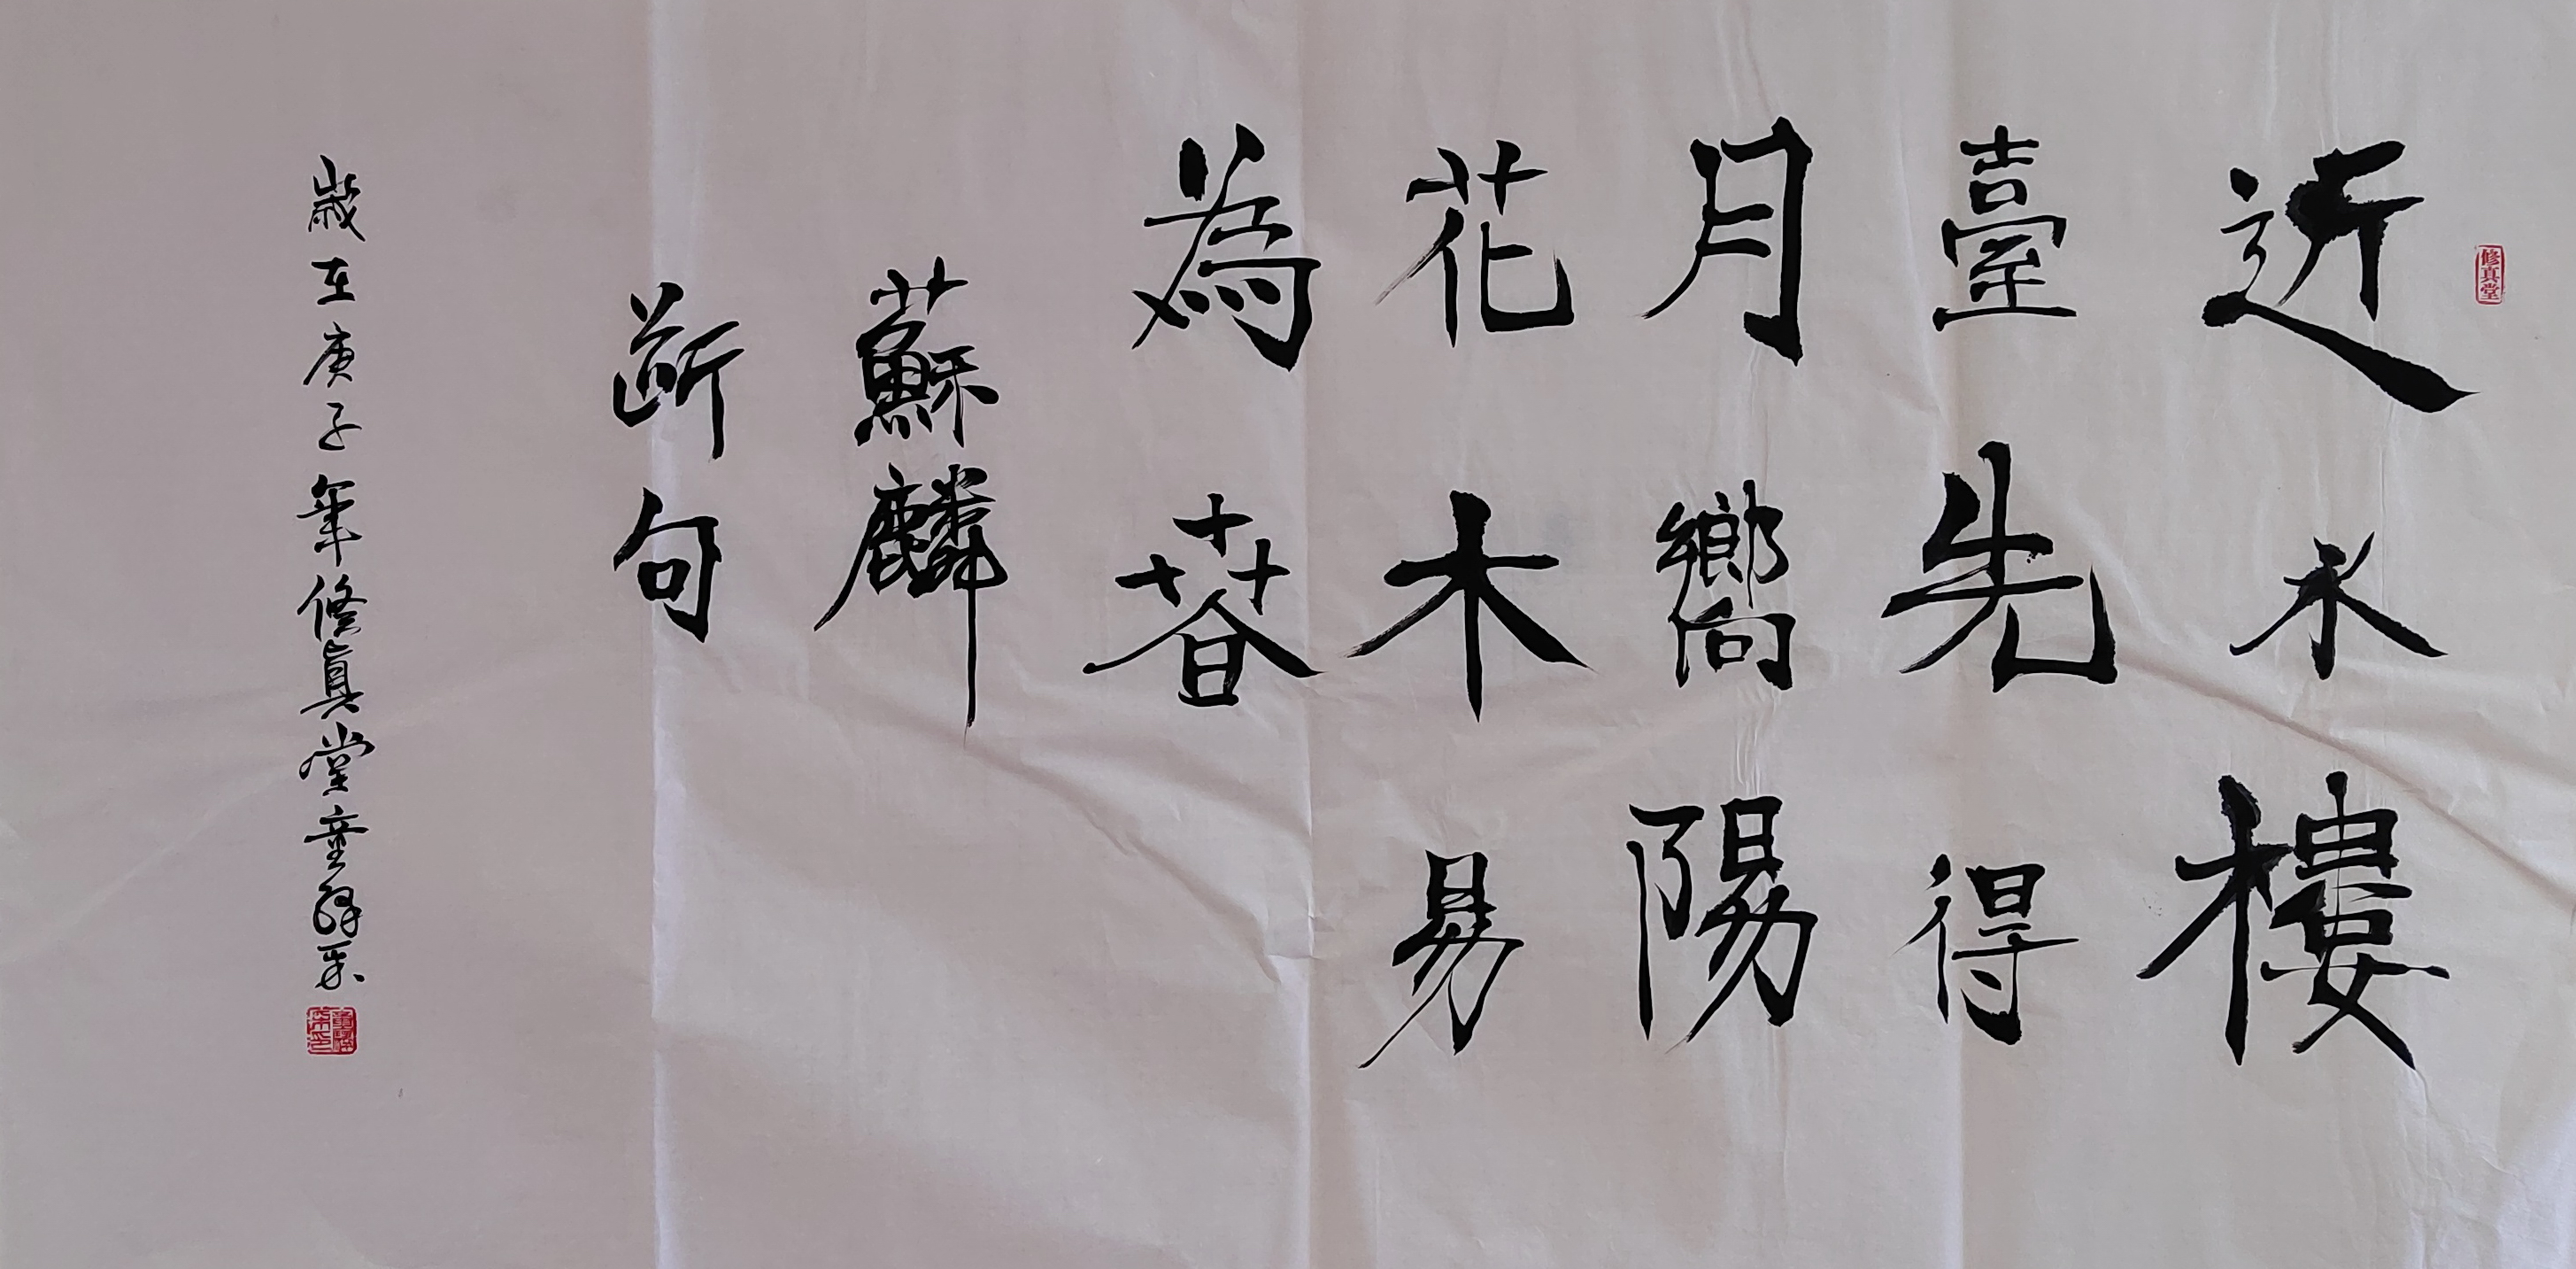 修真堂
近水樓
臺先得
月嚮陽
花木易
為萅
蘇麟
斷句
歲在庚子年修真堂童輝東